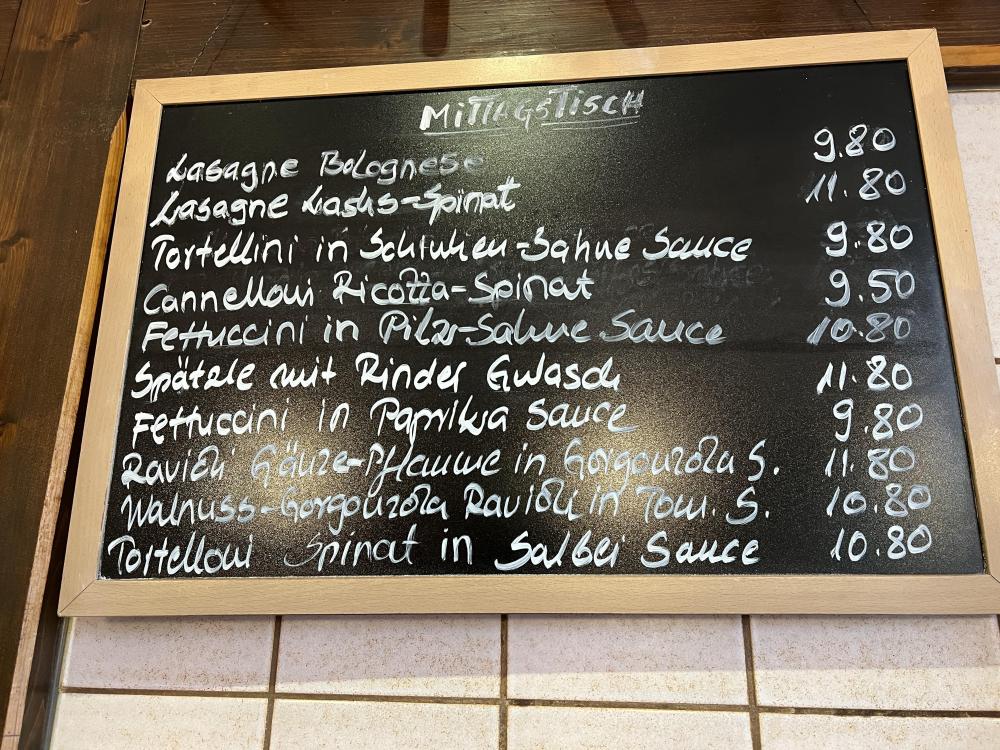 MITTAGSTISCH
Lasagne Bolognese 9.80
Lasagne Lachs-Spinat 11.80
Tortellini in Schinken-Sahne Sauce 9.80
Cannelloni Ricotta-Spinat 9.50
Fettuccini in Pilz-Sahne Sauce 10.80
Spätzle mit Rinder Gulasch 11.80
Fettuccini in Paprika Sauce 9.80
Ravioli Gänze-Pflaume in Gorgonzola S. 11.80
Walnuss-Gorgonzola Ravioli in Tom. S. 10.80
Tortelloni Spinat in Salbei Sauce 10.80